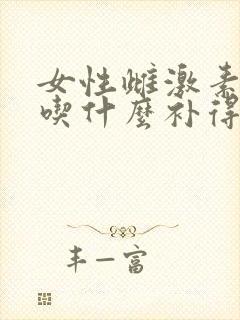 女性雌激素
喫什麼补得
丰一富